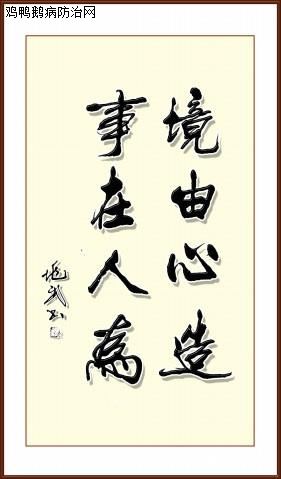 鸡鸭鹅病防治网
境由心造
事在人為